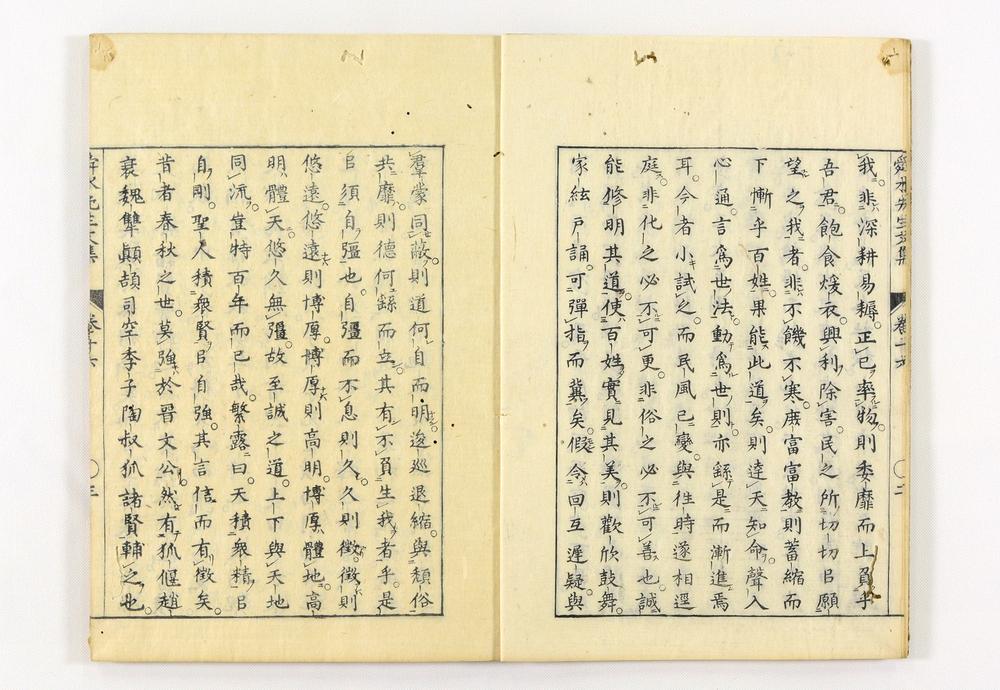 舜水先生文集 卷十六 〇二
我非深耕易耨正己率物則委靡而上負乎
吾君飽食煖衣興利除害民之所切切㠯願
望之我者非不饑不寒庶富富教則蓄縮而
下慚乎百姓果能此道矣則達天知命聲入
心通言爲世法動爲世則亦繇是而漸進焉
耳今者小試之而民風已變與徃時遂相逕
庭非化之必不可更非俗之必不可善也誠
能修明其道使百姓實見其美則歡欣鼓舞
家絃戸誦可彈指而冀矣假令回互遲疑與
羣蒙同蔽則道何自而明逡巡退縮與頽俗
共靡則德何繇而立其有不負生我者乎是
㠯須自彊也自彊而不息則久久則徵徵則
悠遠悠遠則博厚博厚則高明博厚體地高
明體天悠久無彊故至誠之道上下與天地
同流豈特百年而已哉繁露曰天積衆精㠯
自剛聖人積衆賢㠯自強其言信而有徵矣
昔者春秋之世莫強於晉文公然有狐偃趙
衰魏犨顚頡司空季子陶叔狐諸賢輔之也
舜水先生文集 卷十六 〇三